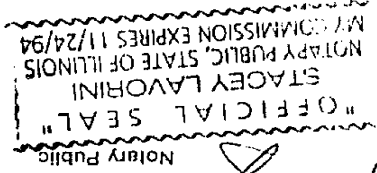 Notary Public
"OFFICIAL SEAL"
STACEY LAVORINI
NOTARY PUBLIC, STATE OF ILLINOIS
MY COMMISSION EXPIRES 11/24/94